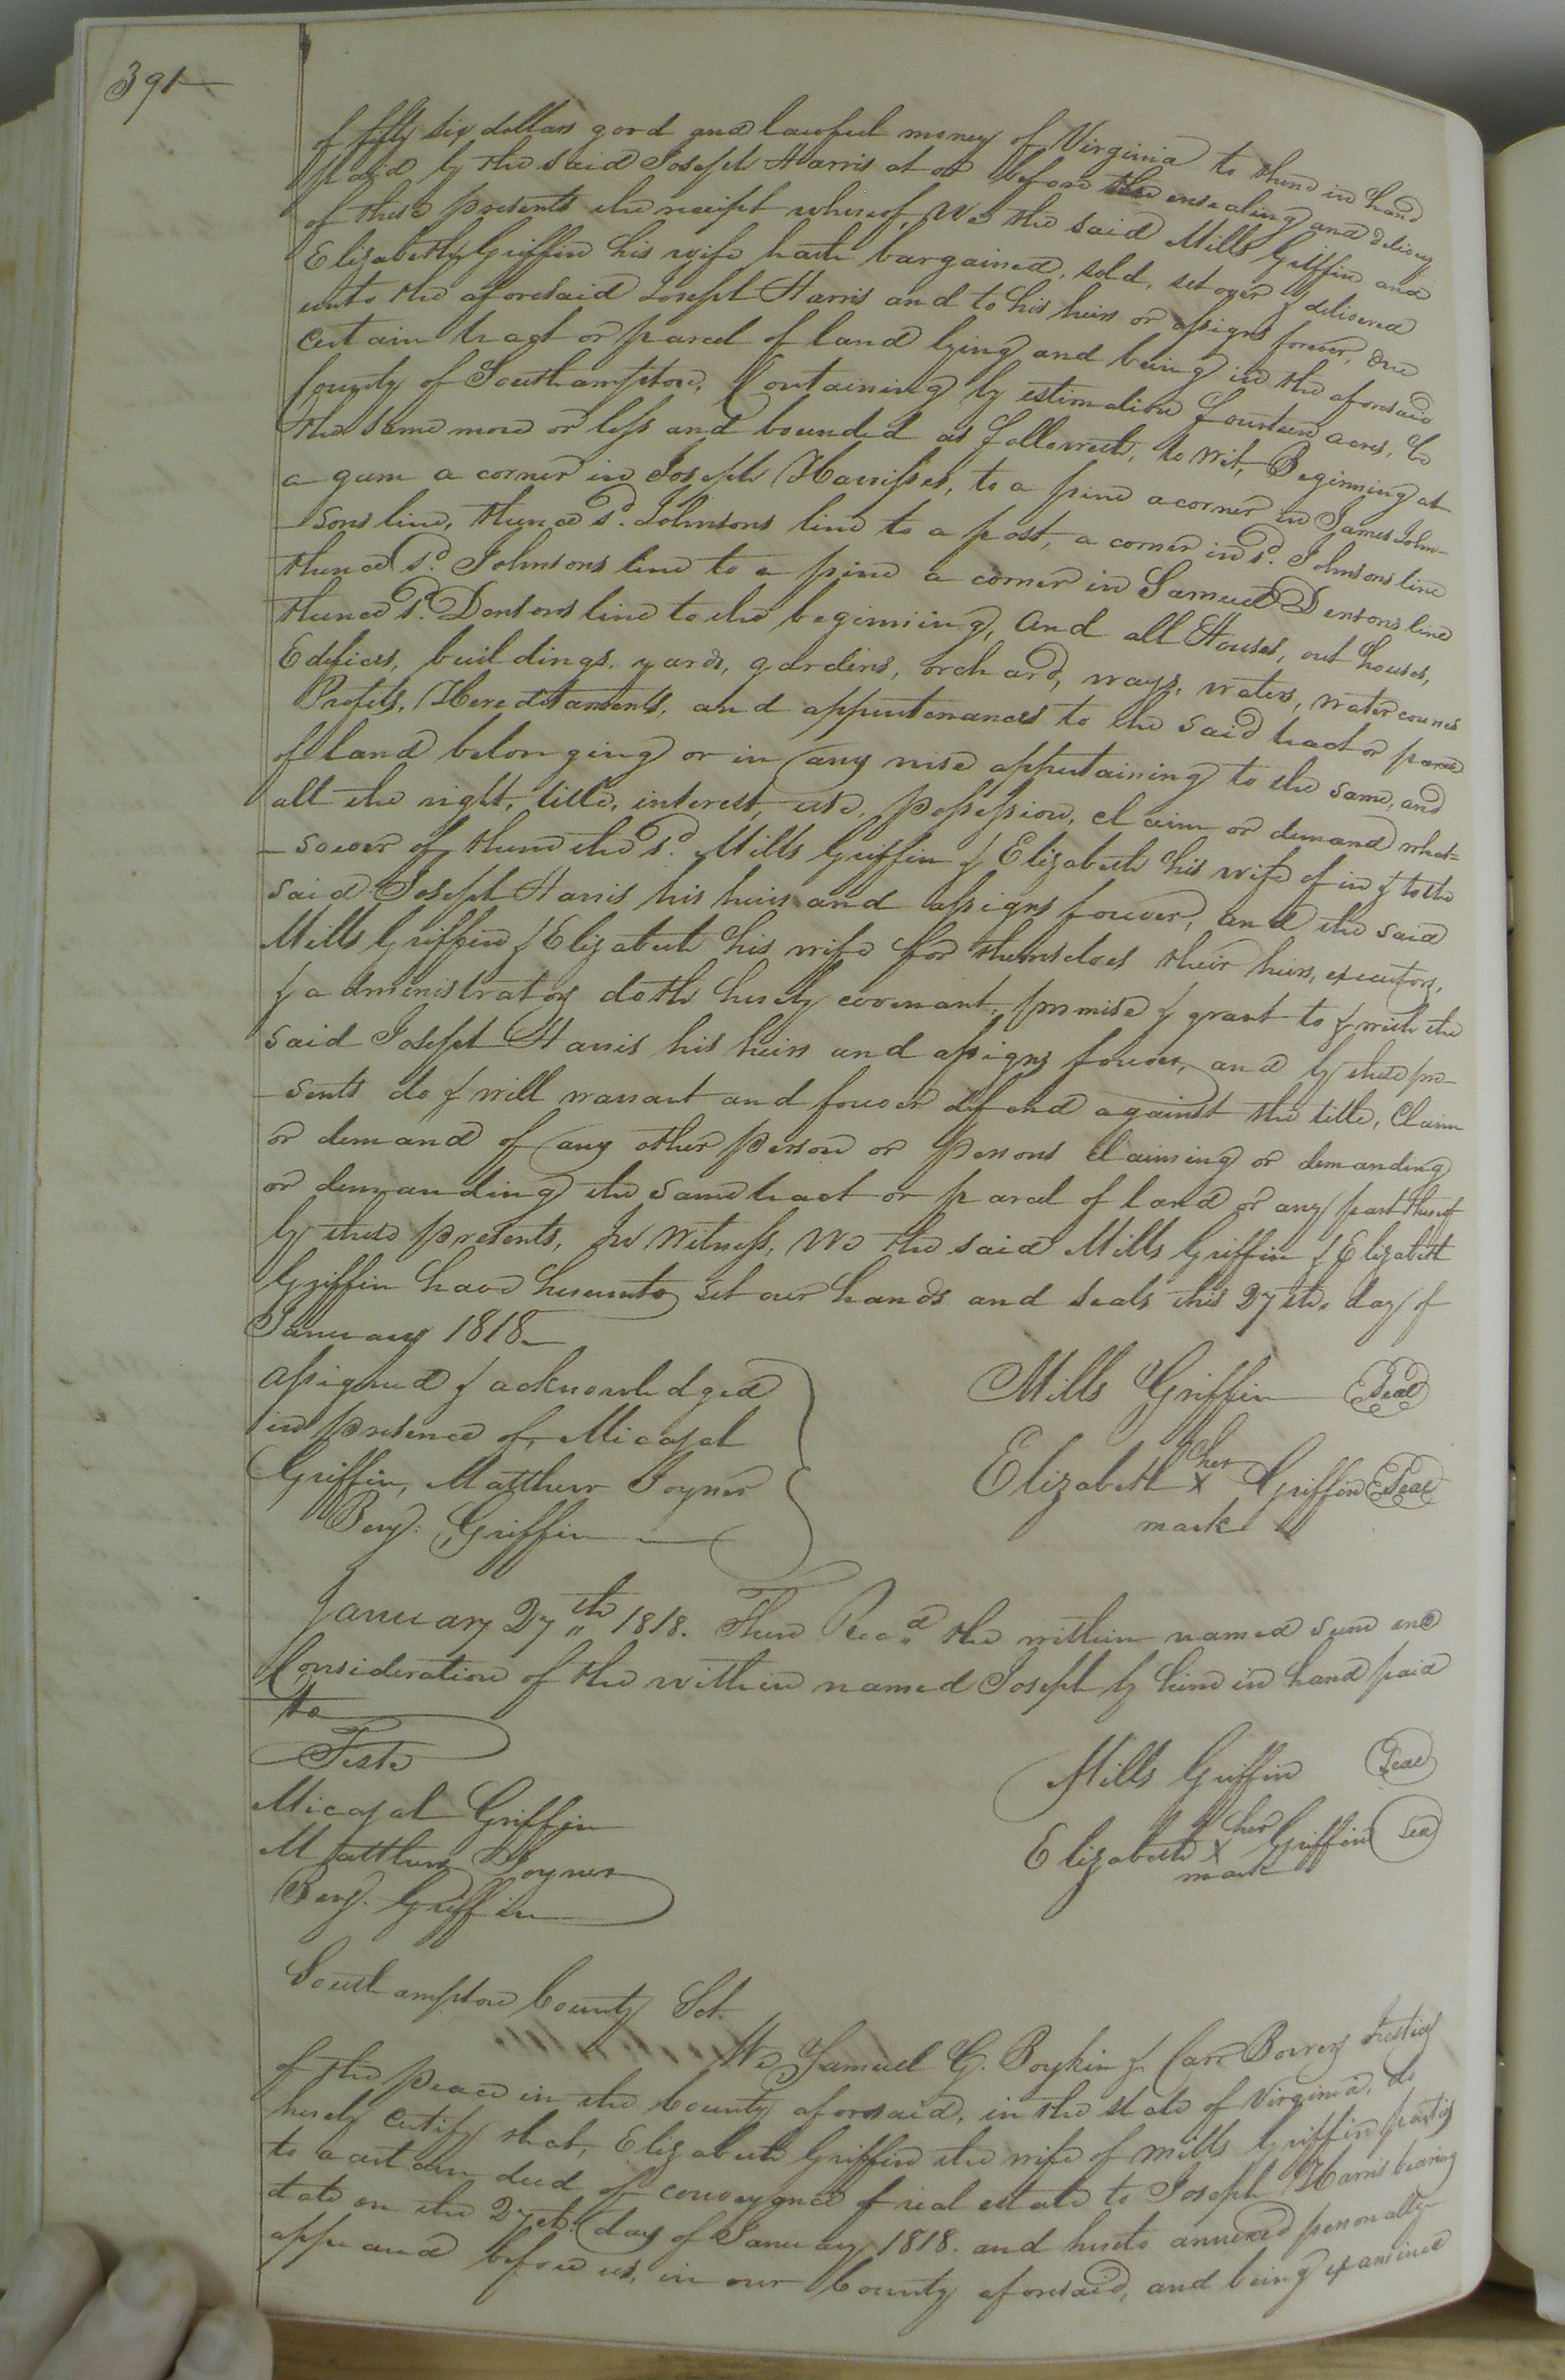 391
of fifty six dollars good and lawful money of Virginia to them in hand
paid by the said Joseph Harris at or before the ensealing and delivery
of these presents the receipt whereof, We the said Mills Griffin and
Elizabeth Griffin his wife hath bargained, sold, set over & delivered
unto the aforesaid Joseph Harris and to his heirs or assigns forever, One
certain tract or parcel of land lying and being in the aforesaid
County of Southampton, Containing by estimation fourteen acres, be
the same more or less and bounded as followeth, to wit, Beginning at
a gum a corner in Joseph Harrisses, to a pine a corner in James John-
-sons line, thence sd. Johnsons line to a post, a corner in sd. Johnsons line
thence sd. Johnsons line to a pine a corner in Samuel Densons line
thence sd. Densons line to the beginning, And all Houses, out houses,
Edifices, buildings, yards, gardins, orchard, ways, waters, water courses
Profits, Hereditaments, and appurtenances to the said tract or parcel
of land belonging or in any wise appertaining to the same, and
all the right, title, interest, use, possession, claim or demand what-
-soever of them the sd. Mills Griffin & Elizabeth his wife of in & to the
said Joseph Harris his heirs and assigns forever, and the said
Mills Griffin & Elizabeth his wife for themselves their heirs, executors,
& administrators doth hereby covenant, promise & grant to & with the
said Joseph Harris his heirs and assigns forever, and by these pre-
-sents do & will warrant and forever defend against the title, Claim
or demand of any other person or persons claiming or demanding
or demanding the same tract or parcel of land or any part thereof
by these presents, In Witness, We the said Mills Griffin & Elizabeth
Griffin have hereunto set our hands and seals this 27th. day of
January 1818—
assigned & acknowledged
in presence of, Micajah
Griffin, Matthew Joyner
Benj: Griffin
Mills Griffin Seal
Elizabeth her X mark Griffin Seal
January 27th 1818. Then Recd the within named sum and
Consideration of the within named Joseph by him in hand paid
to
Teste
Micajah Griffin
Matthew Joyner
Benj. Griffin
Mills Griffin Seal
Elizabeth her X mark Griffin Seal
Southampton County Sct.
We Samuel G. Boykin & Carr Bowers Justices
of the peace in the County aforesaid, in the state of Virginia, do
hereby certify that, Elizabeth Griffin the wife of Mills Griffin parties
to a certain deed of conveyance of real estate to Joseph Harris bearing
date on the 27th. day of January 1818. and hereto annexed personally
appeared before us, in our County aforesaid, and being examined